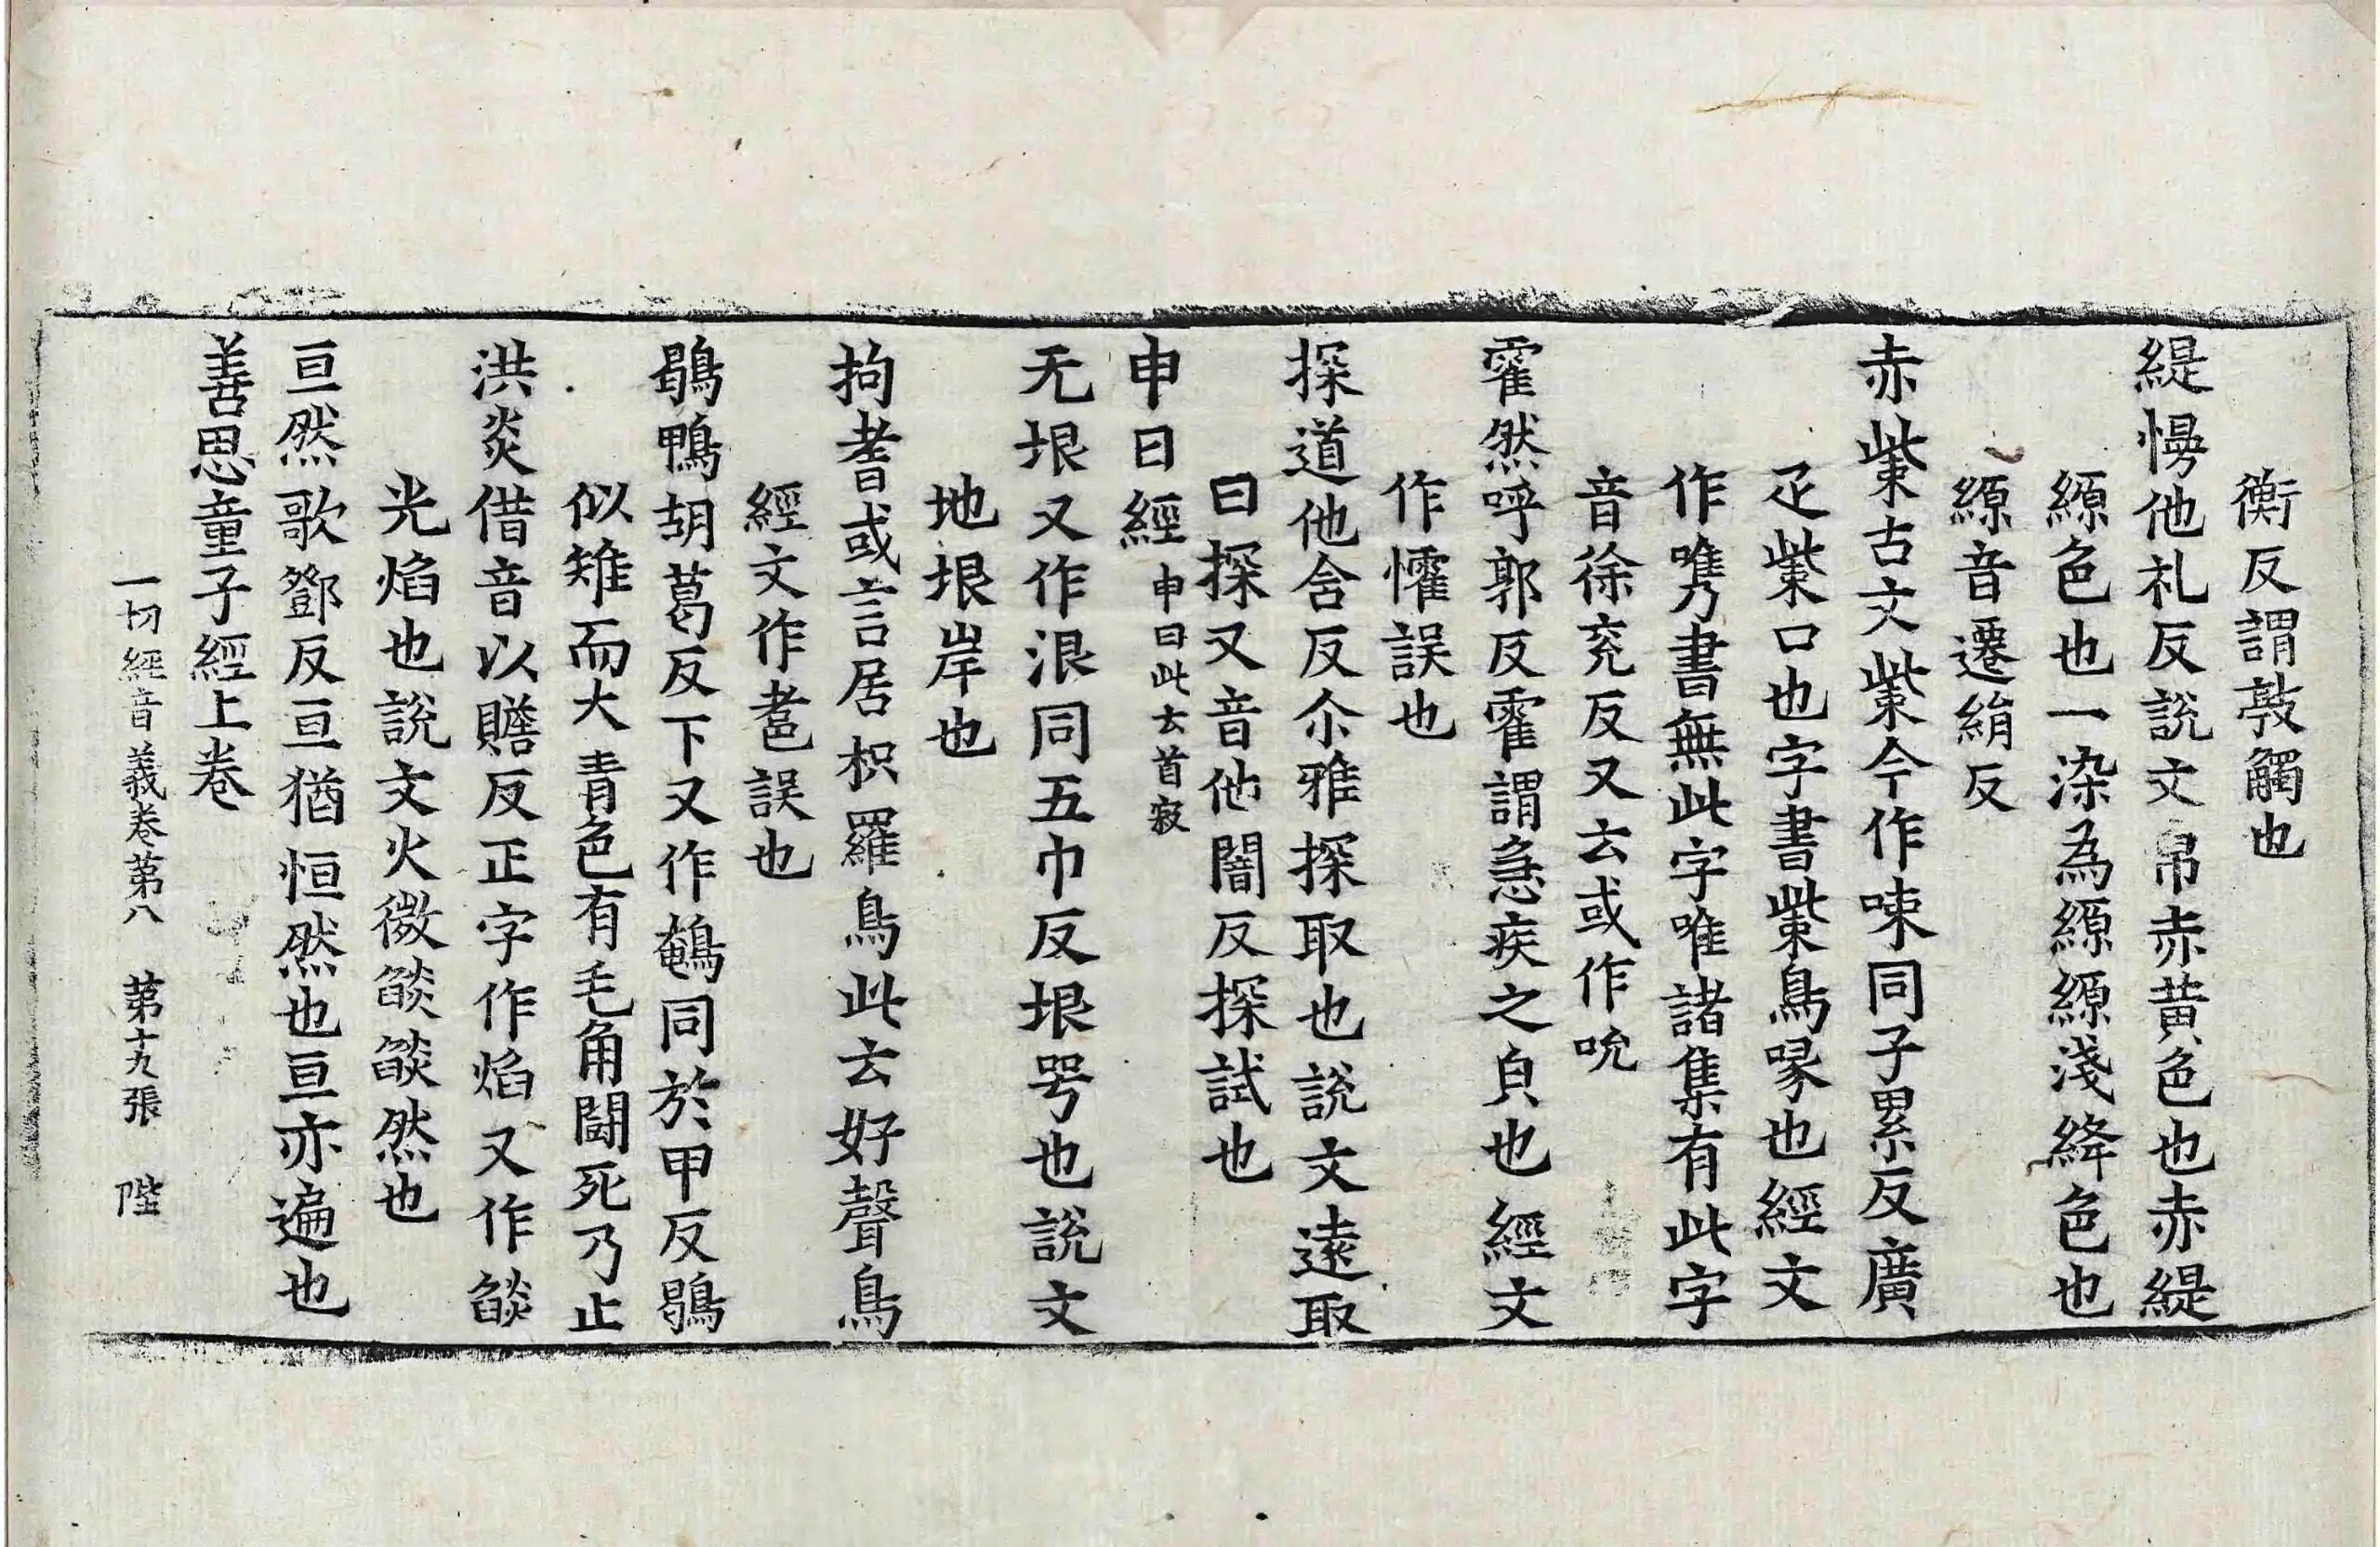 衡反謂敲觸也
緹慢他礼反説文帛赤黄色也赤緹
縓色也一染為縓縓淺絳色也
縓音遷絹反
赤㭰古文㭰今作㖩同子累反廣
疋㭰口也字書㭰鳥喙也經文
作㗱書無此字唯諸集有此字
音徐兖反又云或作吮
霍然呼郭反霍謂急疾之皃也經文
作懼誤也
探道他含反尒雅探取也説文遠取
曰探又音他闇反探試也
申日經申日此云首寂
无垠又作泿同五巾反垠咢也説文
地垠岸也
拘耆或言居枳羅鳥此云好聲鳥
經文作耆誤也
鶡鴨胡葛反下又作䳺同於甲反鶡
似雉而大青色有毛角鬪死乃止
洪炎借音以贍反正字作焰又作燄
光焰也説文火微燄燄然也
亘然歌鄧反亘猶恒然也亘亦遍也
善思童子經上卷
一切經音義卷第八 第十九張 陛